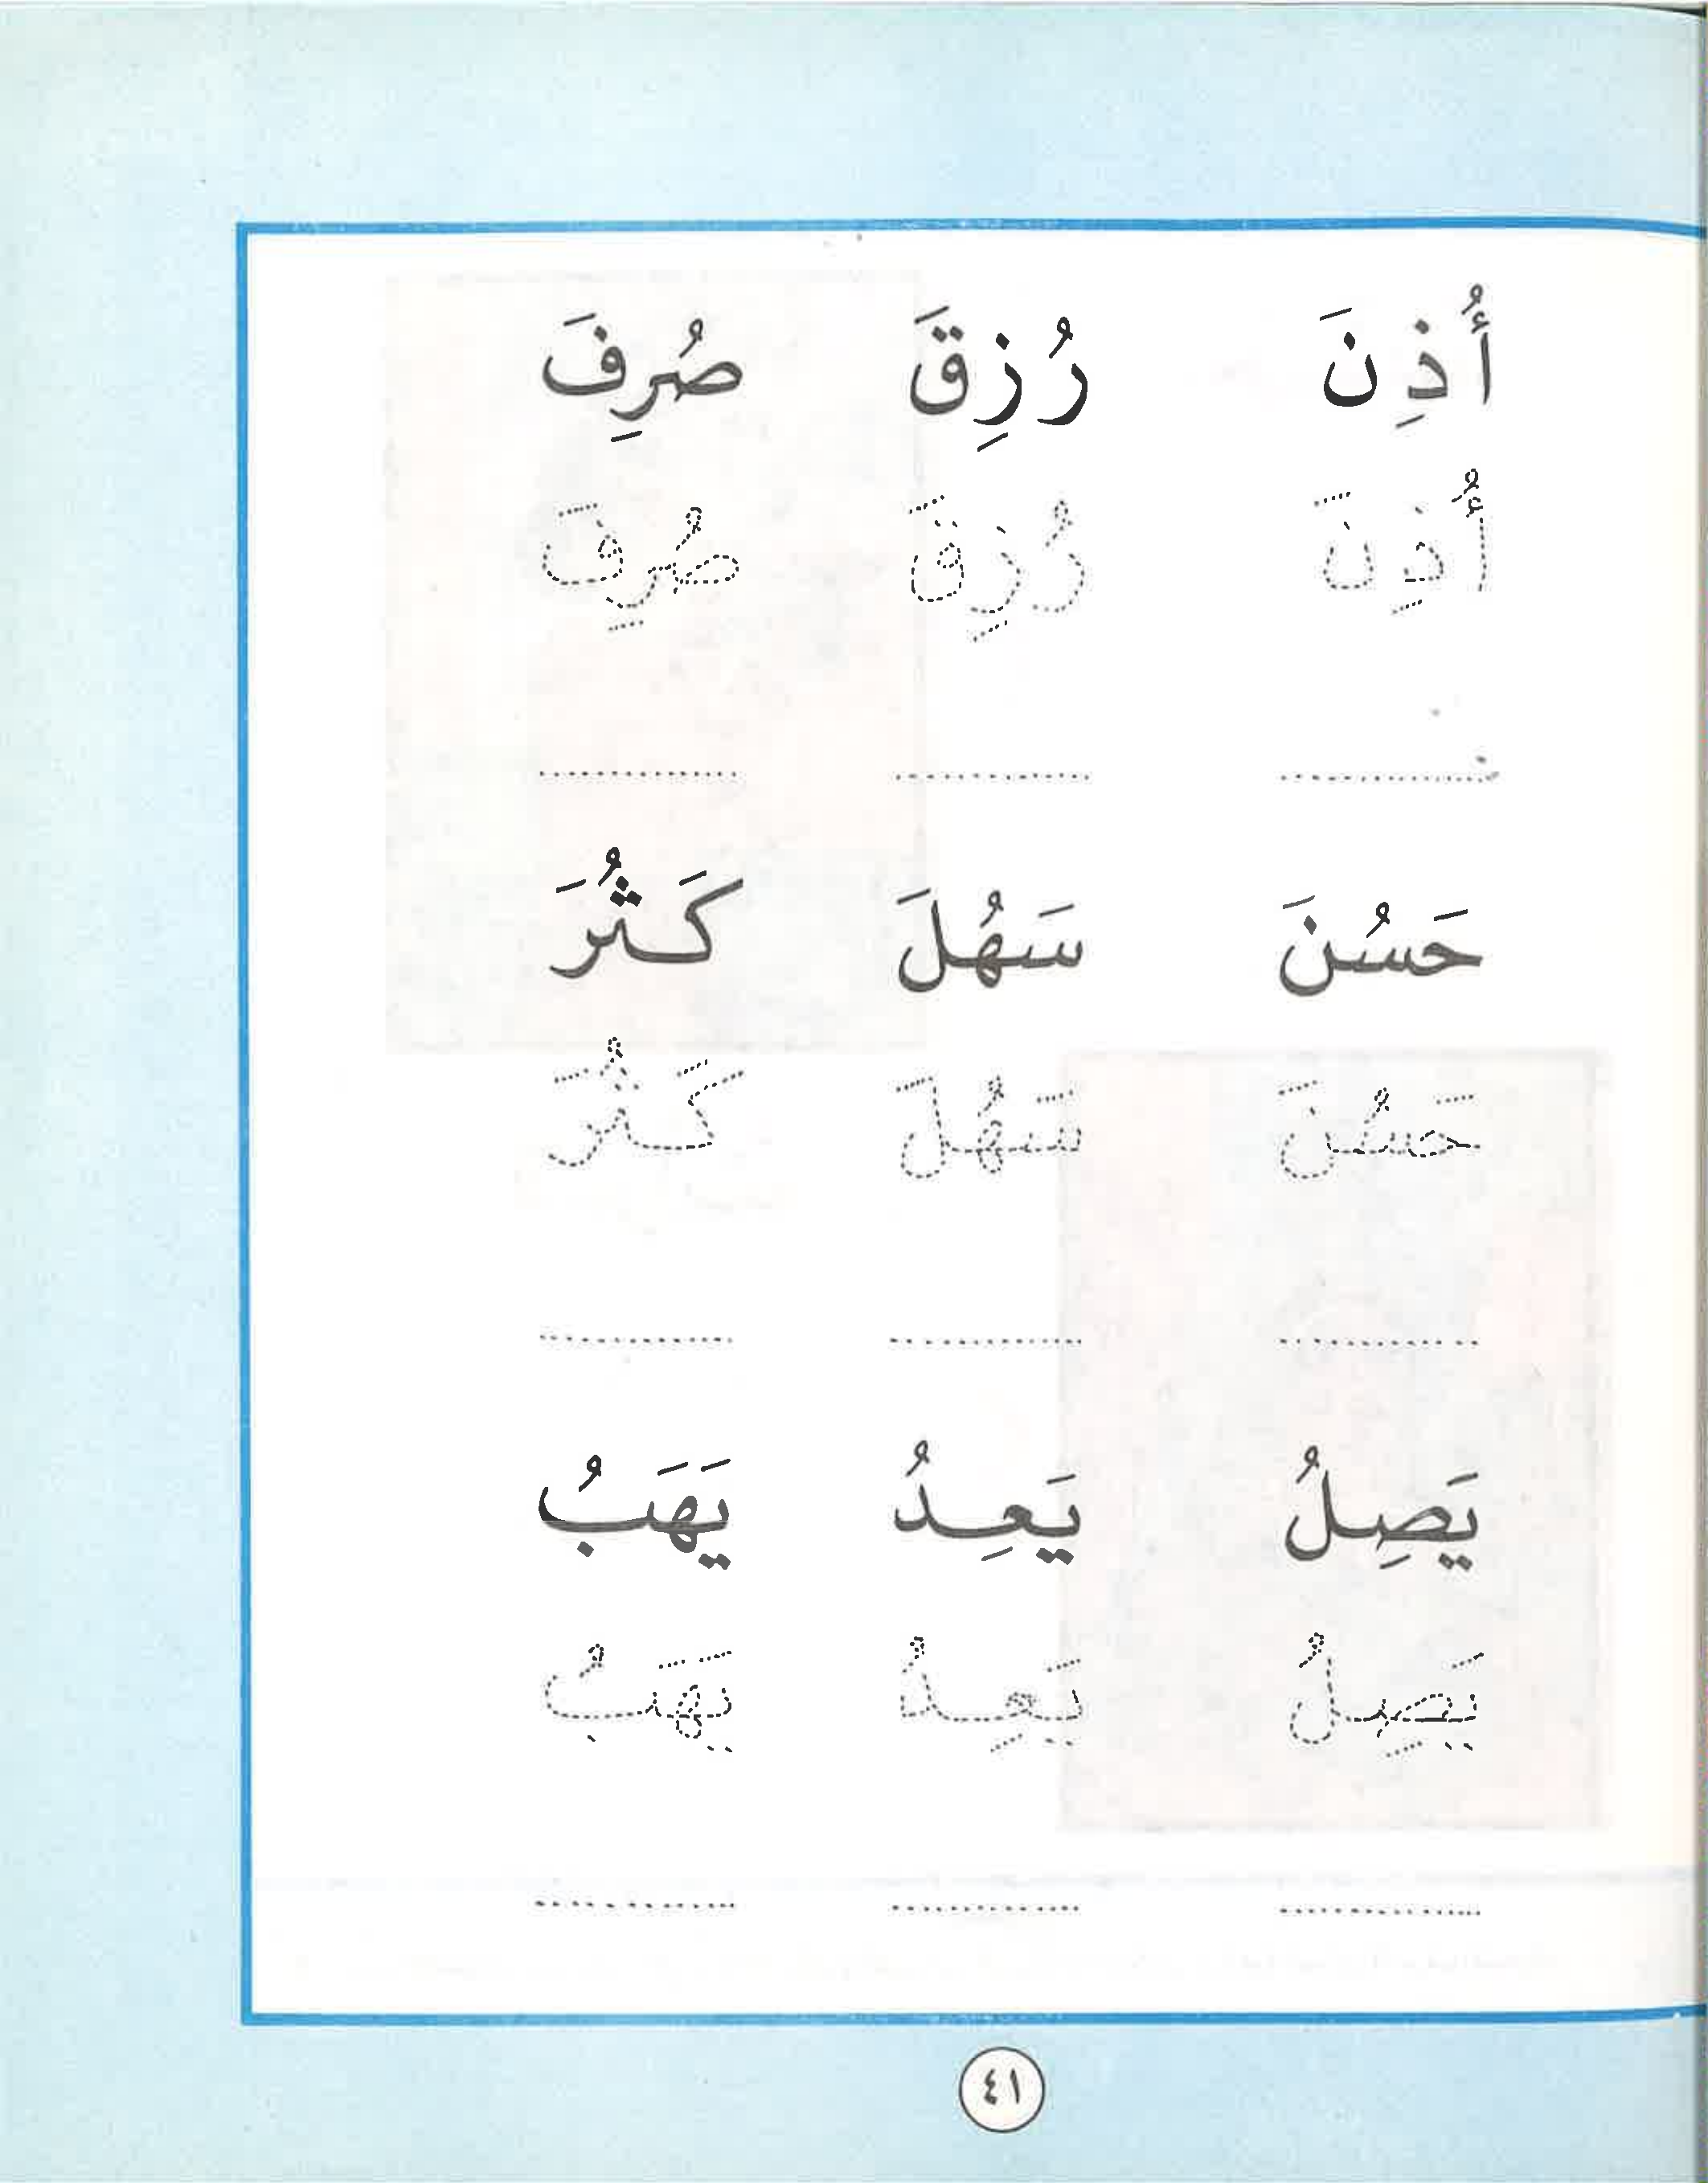 أُذِنَ رُزِقَ صُرِفَ
أُذِنَ رُزِقَ صُرِفَ
حَسُنَ سَهُلَ كَثُرَ
حَسُنَ سَهُلَ كَثُرَ
يَصِلُ يَعِدُ يَهَبُ
يَصِلُ يَعِدُ يَهَبُ
٤١